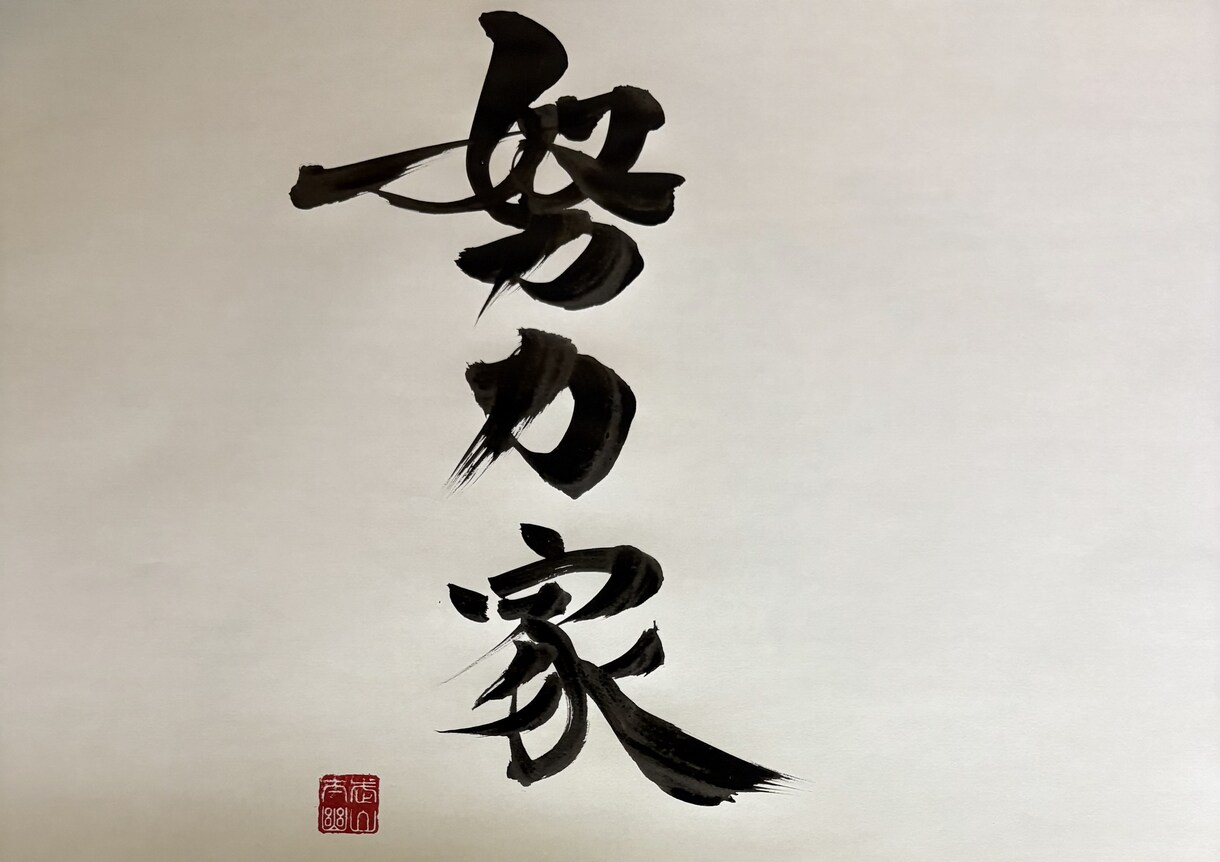 努力家